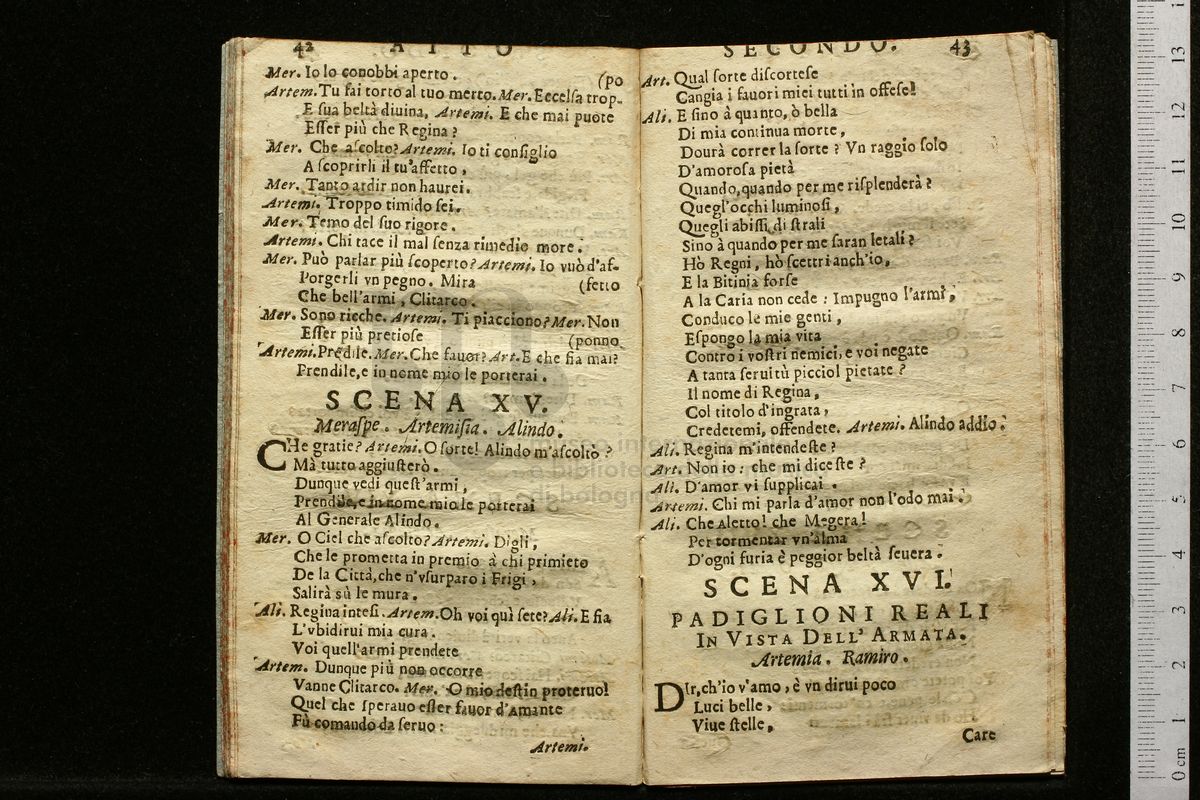 42 ATTO
Mer. Io lo conobbi aperto. (po
Artem. Tu fai torto al tuo merto. Mer. Eccelsa trop-
E sua beltà diuina, Artemi. E che mai puote
Esser più che Regina?
Mer. Che ascolto? Artemi. Io ti consiglio
A scoprirli il tu'affetto,
Mer. Tanto ardir non haurei.
Artemi. Troppo timido sei.
Mer. Temo del suo rigore.
Artemi. Chi tace il mal senza rimedio more.
Mer. Può parlar più scoperto? Artemi. Io vuò d'af-
Porgerli vn pegno. Mira (fetto
Che bell'armi, Clitarco.
Mer. Sono ricche. Artemi. Ti piacciono? Mer. Non
Esser più pretiose (ponno
Artemi. Predile. Mer. Che fauor? Art. E che fia mai?
Prendile, e in nome mio le porterai.
SCENA XV.
Meraspe. Artemisia. Alindo.
CHe gratie? Artemi. O sorte! Alindo m'ascolto?
Mà tutto aggiusterò.
Dunque vedi quest'armi,
Prendile, e in nome mio le porterai
Al Generale Alindo.
Mer. O Ciel che ascolto? Artemi. Digli,
Che le prometta in premio à chi primiero
De la Città, che n'vsurparo i Frigi,
Salirà sù le mura.
Ali. Regina intesi. Artem. Oh voi quì sete? Ali. E fia
L'vbidirui mia cura.
Voi quell'armi prendete
Artem. Dunque più non occorre
Vanne Clitarco. Mer. O mio destin proteruo!
Quel che speravo esser fauor d'Amante
Fù comando da seruo:
Artemi.
SECONDO. 43
Art. Qual sorte discortese
Cangia i fauori miei tutti in offese!
Ali. E sino à quanto, ò bella
Di mia continua morte,
Dourà correr la sorte? Vn raggio solo
D'amorosa pietà
Quando, quando per me risplenderà?
Quegl'occhi luminosi,
Quegli abissi di strali
Sino à quando per me saran letali?
Hò Regni, hò scettri anch'io,
E la Bitinia forse
A la Caria non cede: Impugno l'armi,
Conduco le mie genti,
Espongo la mia vita
Contro i vostri nemici, e voi negate
A tanta seruitù picciol pietate?
Il nome di Regina,
Col titolo d'ingrata,
Credetemi, offendete. Artemi. Alindo addio.
Ali. Regina m'intendeste?
Art. Non io: che mi diceste?
Ali. D'amor vi supplicai.
Artemi. Chi mi parla d'amor non l'odo mai.
Ali. Che Aletto! che Megera!
Per tormentar vn'alma
D'ogni furia è peggior beltà seuera.
SCENA XVI.
PADIGLIONI REALI
IN VISTA DELL' ARMATA.
Artemia. Ramiro.
DIr, ch'io v'amo, è vn dirui poco
Luci belle,
Viue stelle,
Care